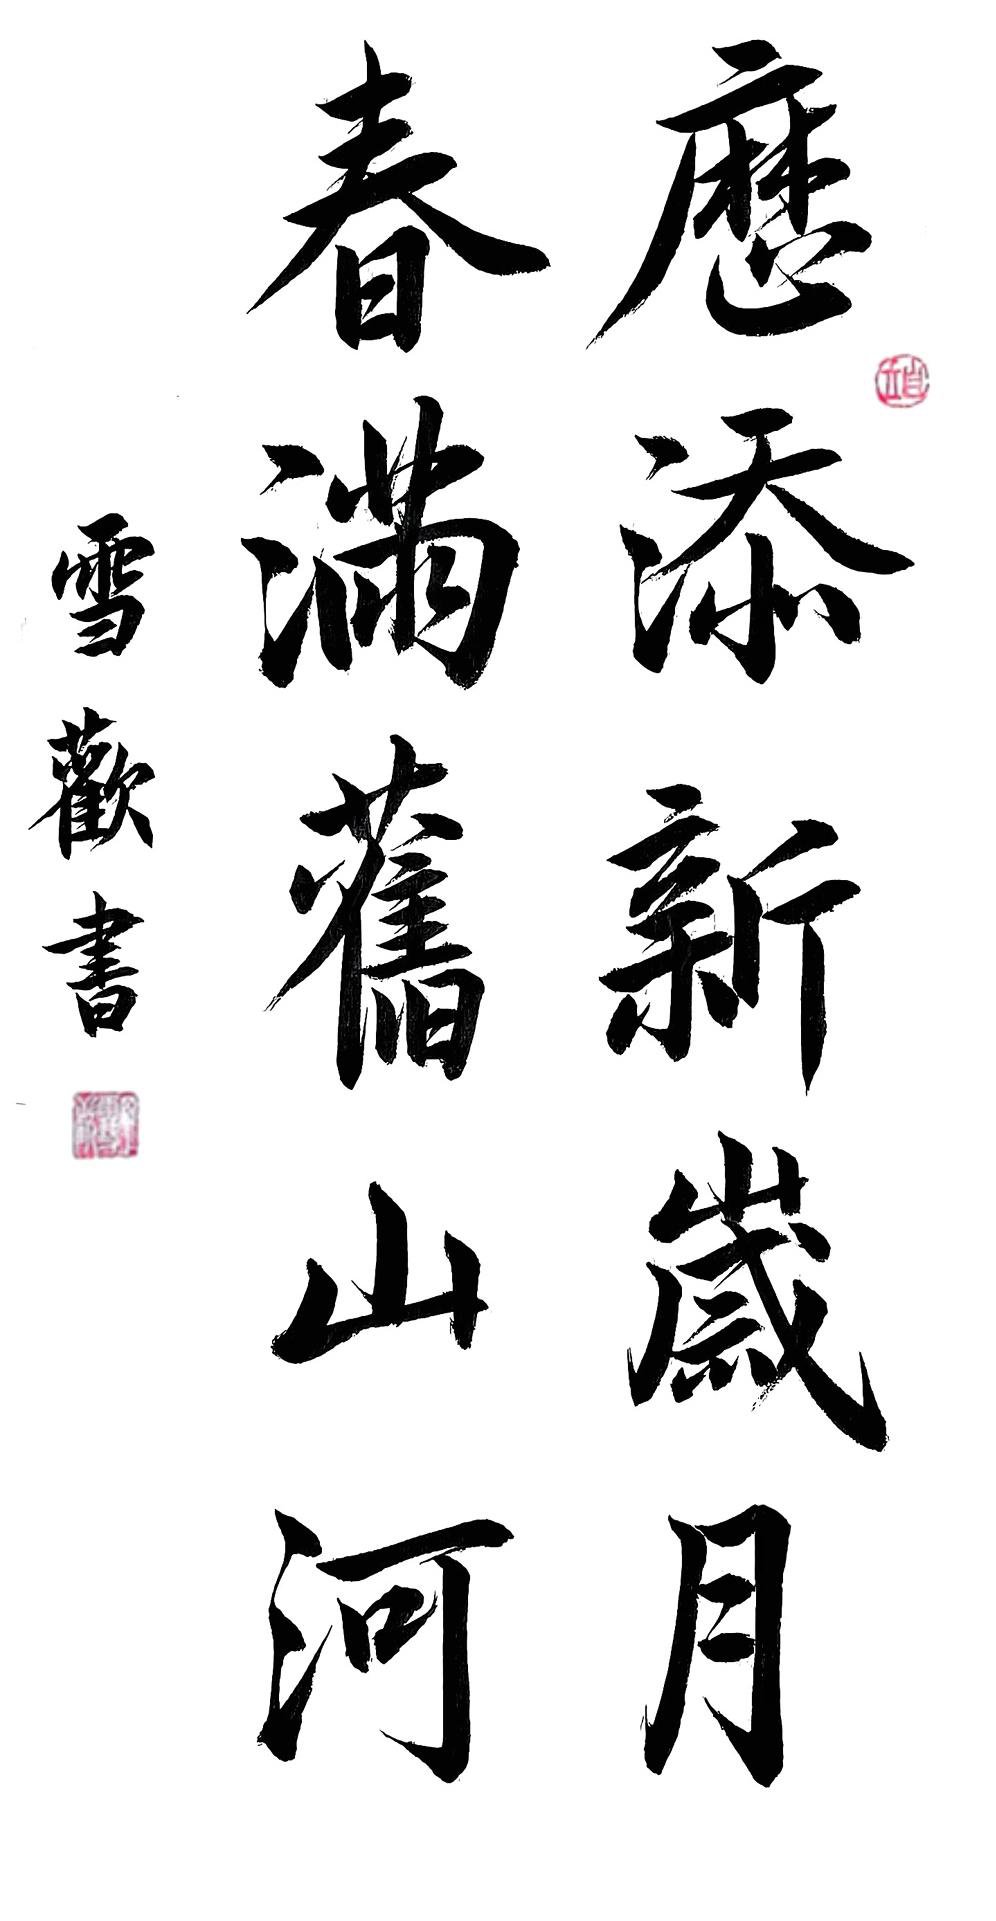 歷添新歲月
春滿舊山河
雪歡書